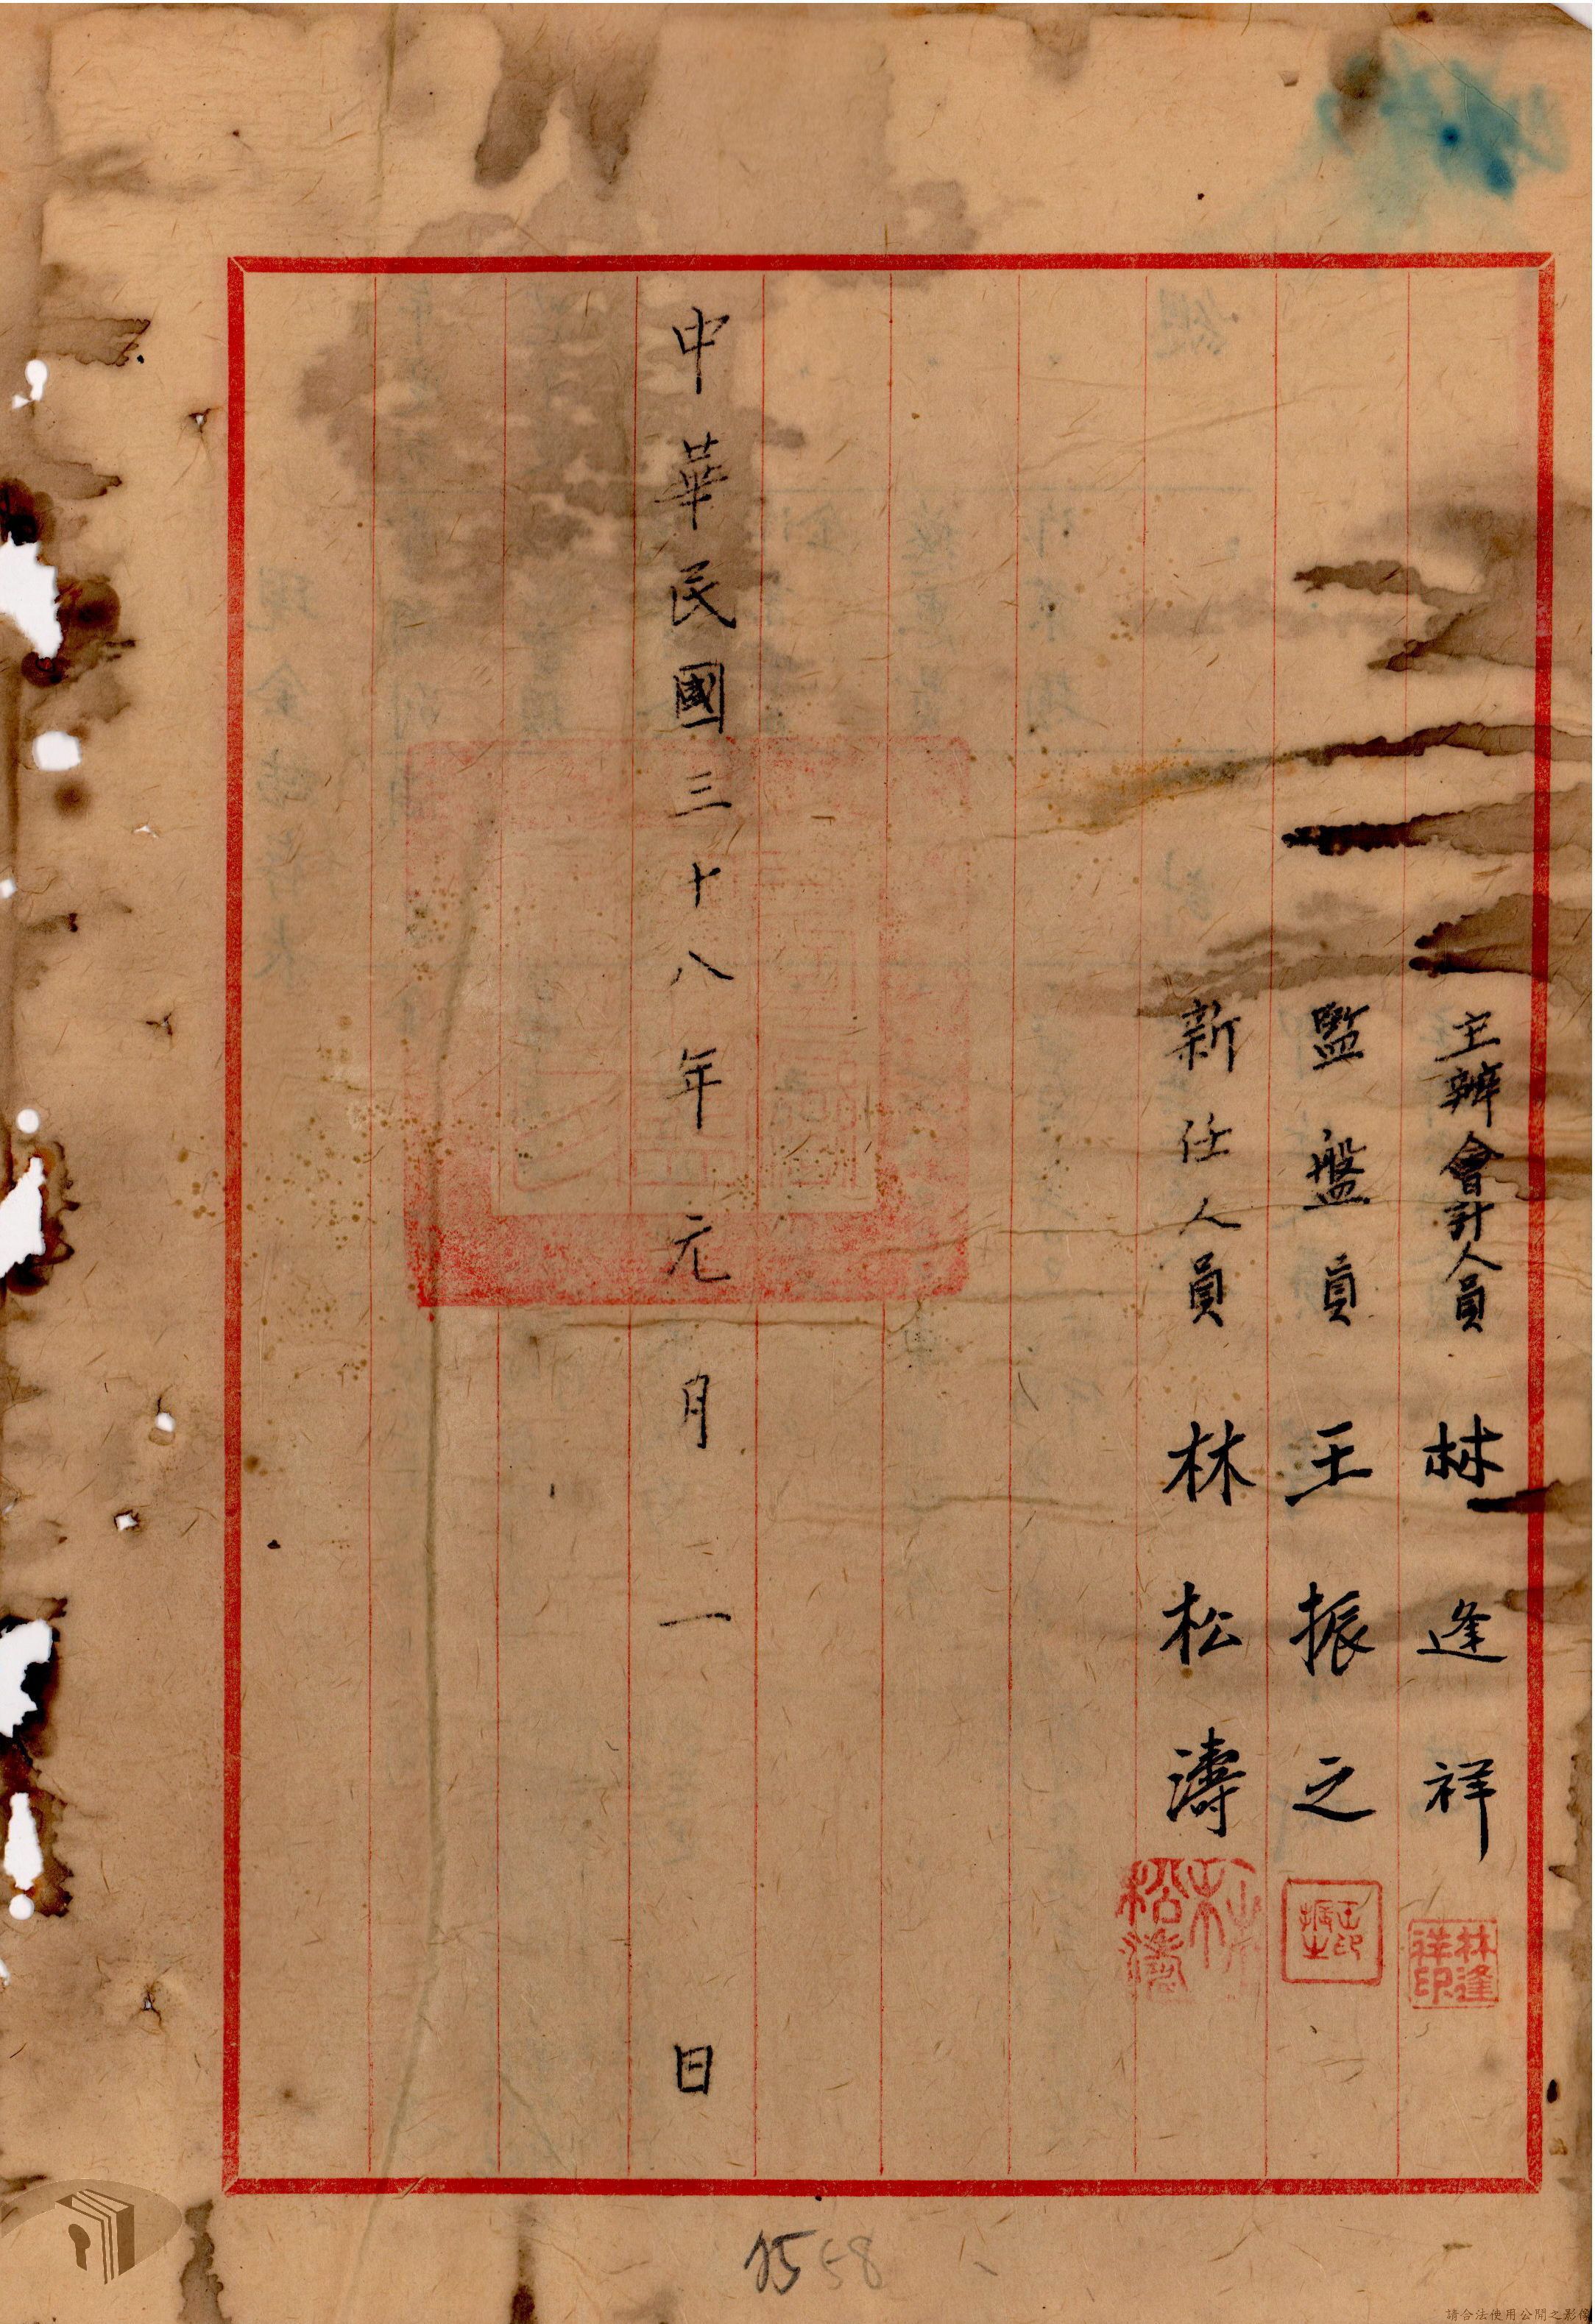 主辦會計人員 林逢祥
林逢祥印
監盤員 王振之
王振之印
新任人員 林松濤
林松濤
中華民國三十八年元月一日
請合法使用公開之影像